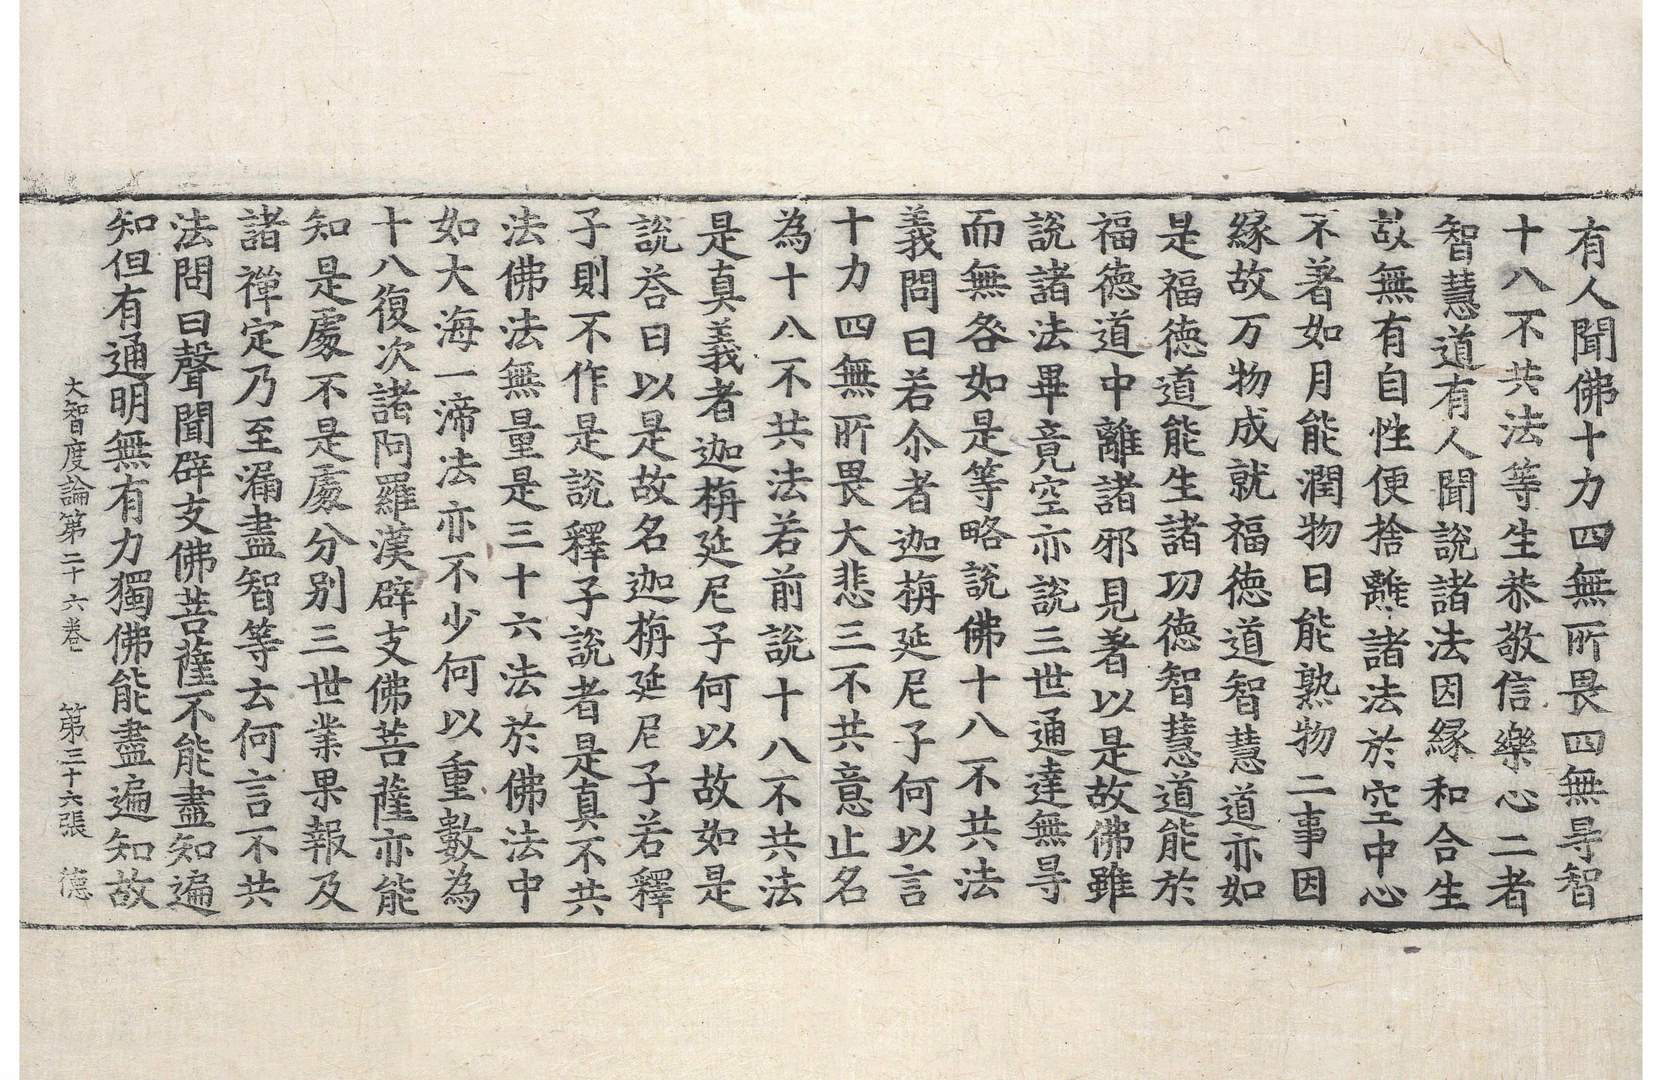 有人聞佛十力四無所畏四無㝵智
十八不共法等生恭敬信樂心二者
智慧道有人聞說諸法因緣和合生
故無有自性便捨離諸法於空中心
不著如月能潤物日能熟物二事因
緣故万物成就福德道智慧道亦如
是福德道能生諸功德智慧道能於
福德道中離諸邪見著以是故佛雖
說諸法畢竟空亦說三世通達無㝵
而無咎如是等略說佛十八不共法
義問曰若尒者迦栴延尼子何以言
十力四無所畏大悲三不共意止名
為十八不共法若前說十八不共法
是真義者迦栴延尼子何以故如是
說荅曰以是故名迦栴延尼子若釋
子則不作是說釋子說者是真不共
法佛法無量是三十六法於佛法中
如大海一渧法亦不少何以重數為
十八復次諸阿羅漢辟支佛菩薩亦能
知是處不是處分別三世業果報及
諸禪定乃至漏盡智等云何言不共
法問曰聲聞辟支佛菩薩不能盡知遍
知但有通明無有力獨佛能盡遍知故
大智度論第二十六卷 第三十六張 德